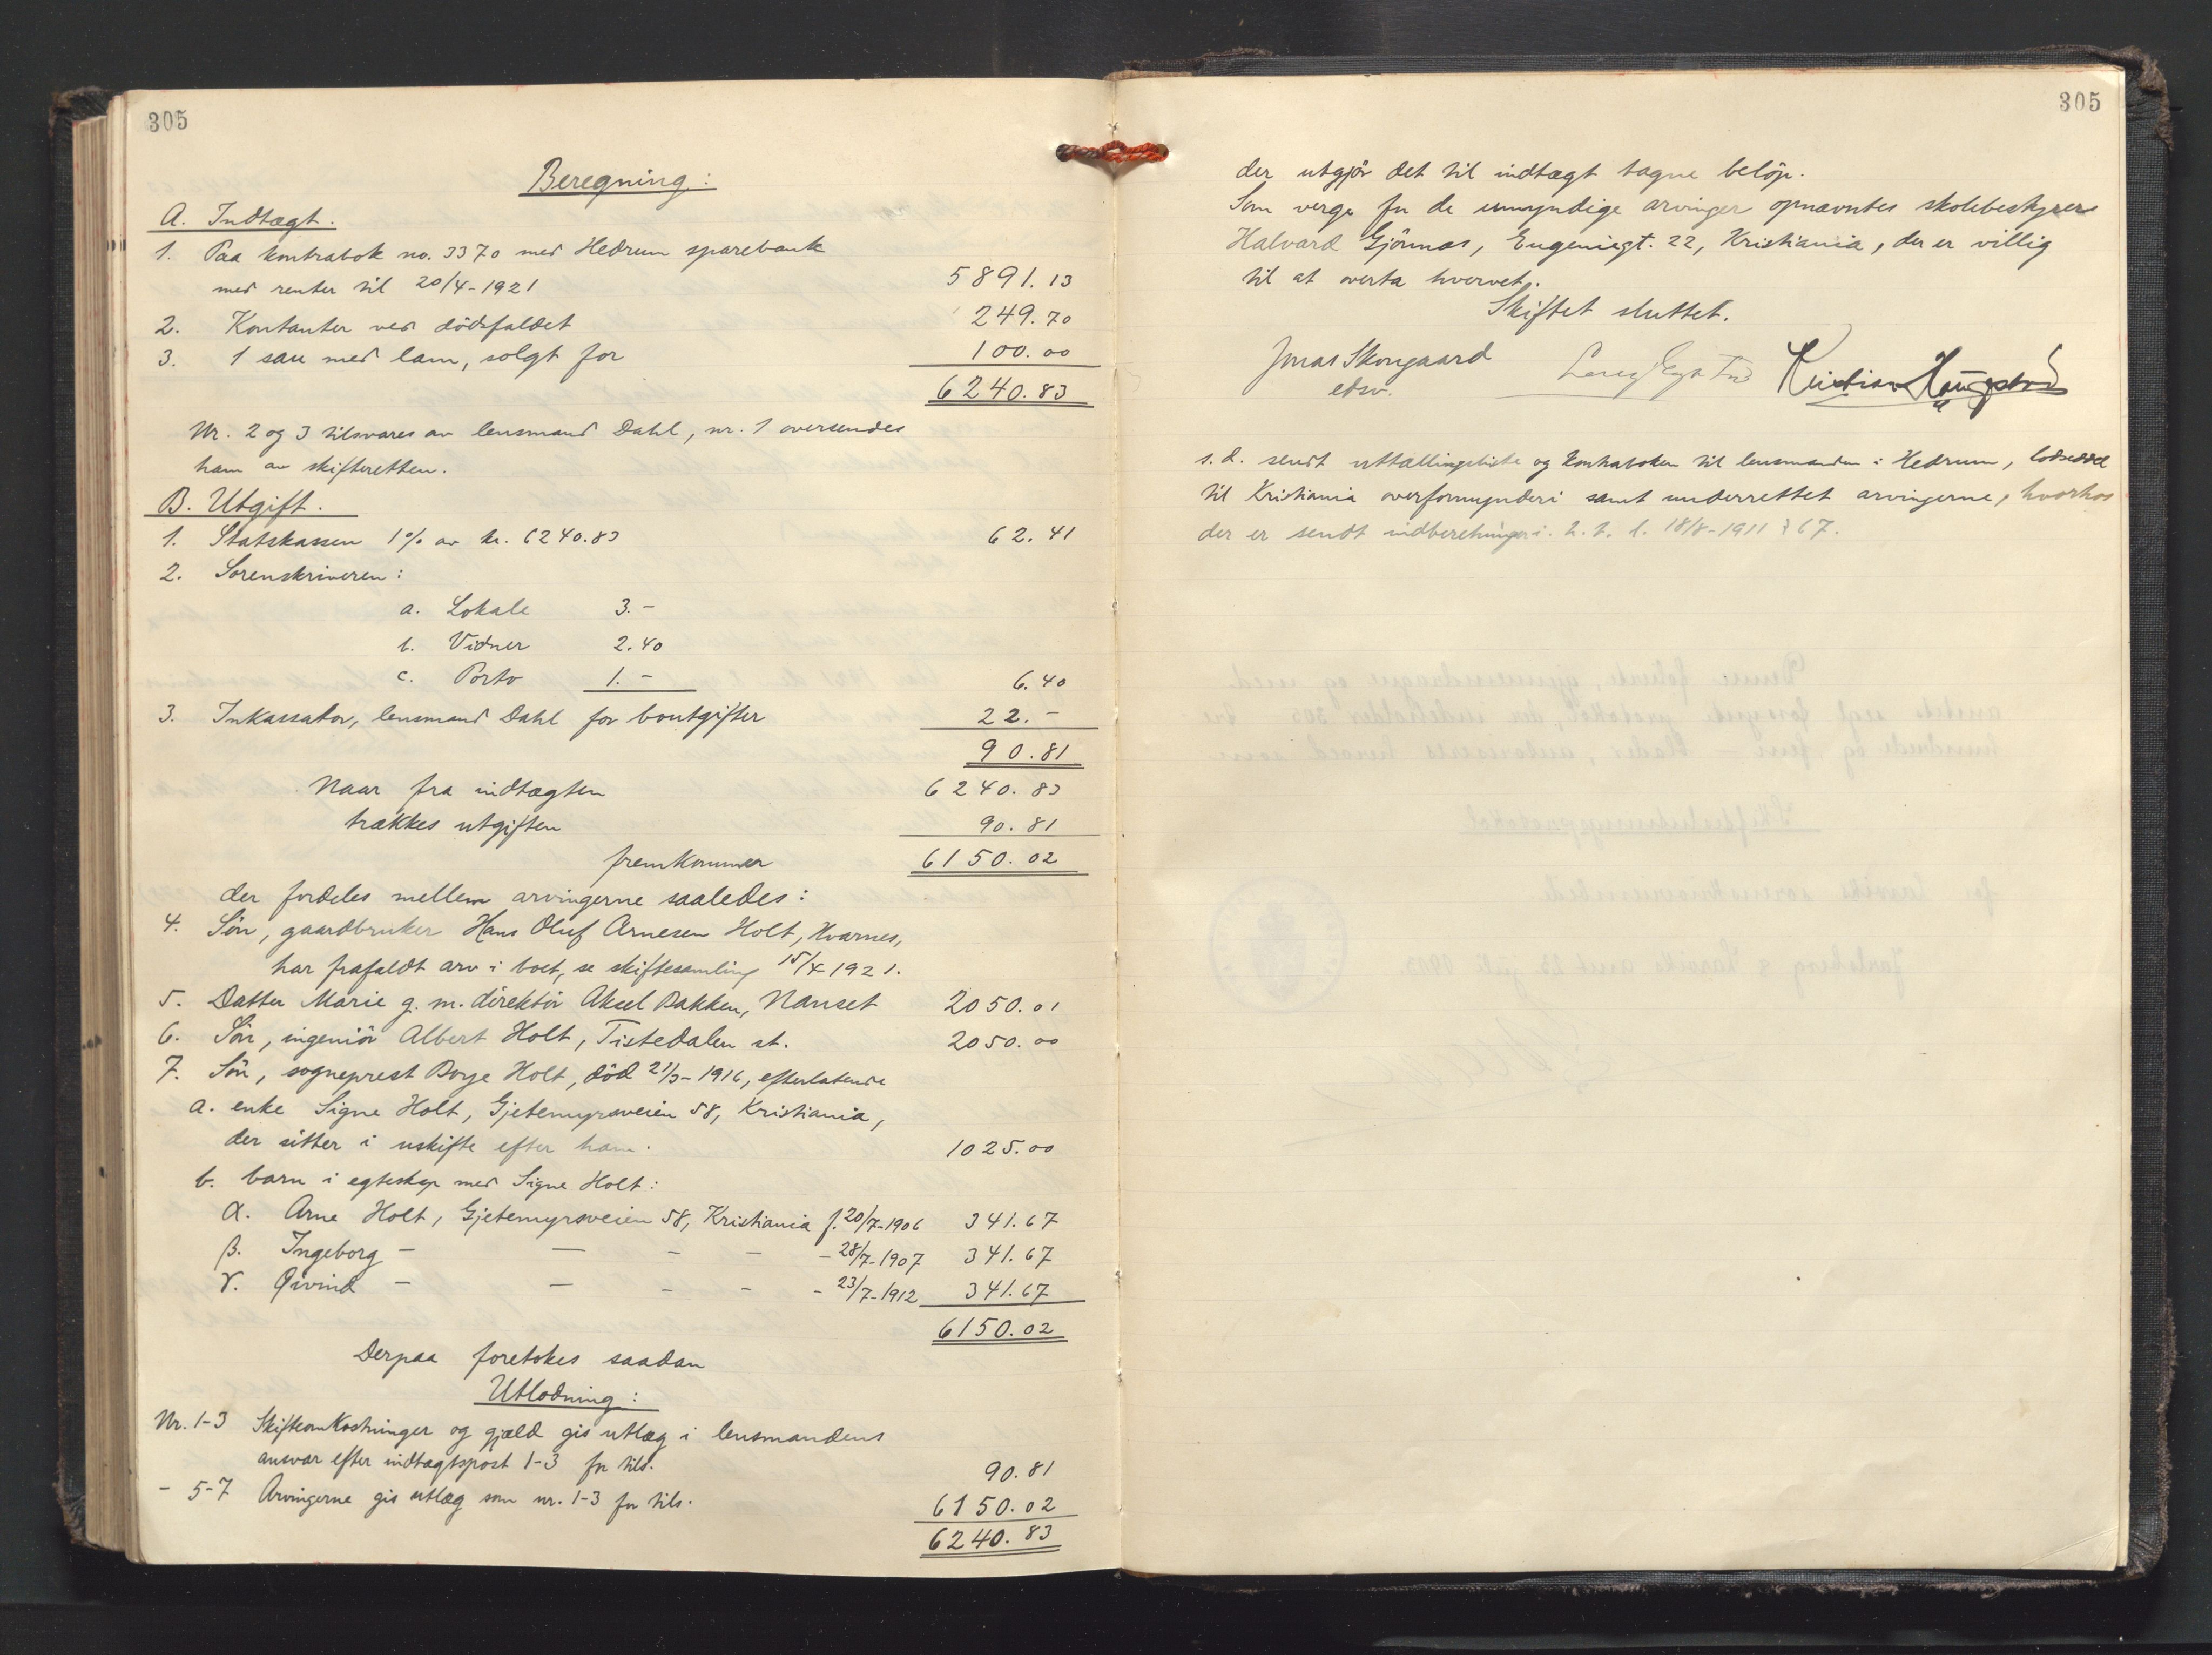 305
Beregning:
A. Indtægt.
1. Paa kontrabok no. 3370 med Hedrum sparebank
med renter til 20/4-1921 5891.13
2. Kontanter ved dödsfaldet 249.70
3. 1 sau med lam, solgt for 100.00
6240.83
Nr. 2 og 3 tilsvares av lensmand Dahl, nr. 1 oversendes
ham av skifteretten.
B. Utgift.
1. Statskassen 1% av kr. 6240.83 62.41
2. Sorenskriveren:
a. Lokale 3.-
b. Vidner 2.40
c. Porto 1.- 6.40
3. Inkassator, lensmand Dahl for boutgifter 22.-
90.81
Naar fra indtægten 6240.83
trækkes utgiften 90.81
fremkommer 6150.02
der fordeles mellem arvingerne saaledes:
4. Sön, gaardbruker Hans Oluf Arnesen Holt, Kvarnes,
har frafaldt arv i boet, se skiftesamling 15/4 1921.
5. Datter Marie g. m. direktör Aksel Bakken, Nanset 2050.01
6. Sön, ingeniör Albert Holt, Tistedalen st. 2050.00
7. Sön, sogneprest Borge Holt, död 21/3-1916, efterlatende
a. enke Signe Holt, Gjetemyrsveien 58, Kristiania,
der sitter i uskifte efter ham. 1025.00
b. barn i egteskap med Signe Holt:
α. Arne Holt, Gjetemyrsveien 58, Kristiania f. 20/7-1906 341.67
β. Ingeborg - - - - - 28/7-1907 341.67
γ. Øivind - - - - - 23/7-1912 341.67
6150.02
Derpaa foretokes saadan
Utlodning:
Nr. 1-3 Skifteomkostninger og gjæld gis utlæg i lensmandens
ansvar efter indtægtspost 1-3 for tils. 90.81
- 5-7 Arvingerne gis utlæg som nr. 1-3 for tils. 6150.02
6240.83
305
der utgjör det til indtægt tagne belöp.
Som verge for de umyndige arvinger opnævntes skolebestyrer
Halvard Gjönnæs, Eugeniegt. 22, Kristiania, der er villig
til at overta hvervet.
Skiftet sluttet.
Jonas Skougaard Kristian Haugestad
edsv.
s.d. sendt uttællingsliste og kontraboken til lensmanden i Hedrum, lodseddel
til Kristiania overformynderi samt underrettet arvingerne, hvorhos
der er sendt indberetninger i. h. t. l. 18/8-1911 § 67.